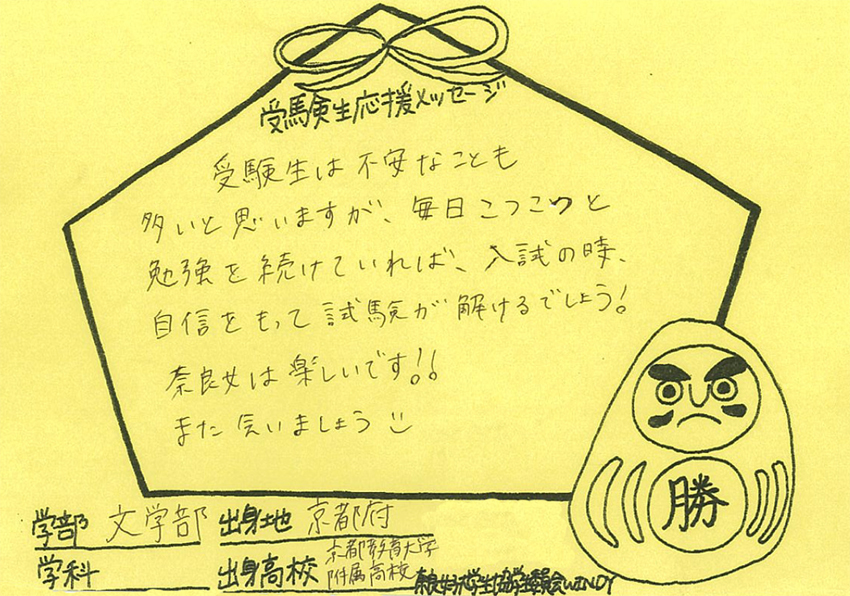 受験生応援メッセージ
受験生は不安なことも
多いと思いますが、毎日こつこつと
勉強を続けていれば、入試の時、
自信をもって試験が解けるでしょう!
奈良女は楽しいです!!
また会いましょう
勝
学部 文学部 出身地 京都府
学科 出身高校 京都教育大学
附属高校
奈良女子大学生協学生委員会WINDY